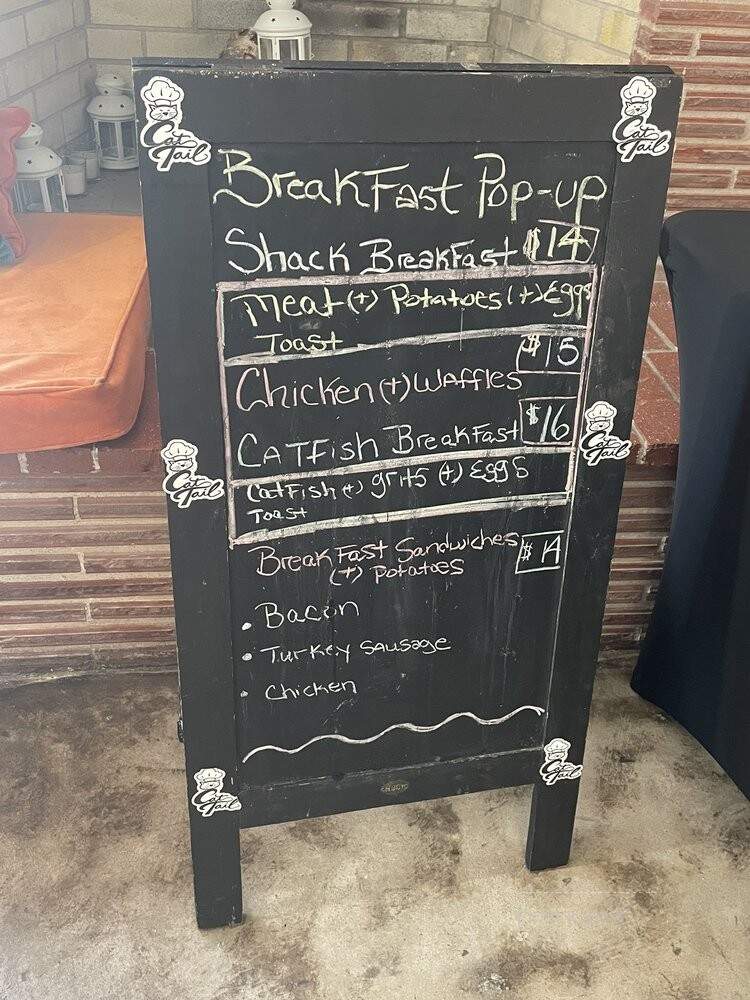 Cat Tail
Cat Tail
BreakFast Pop-up
Shack BreakFast $14
Meat (+) Potatoes (+) Eggs
Toast
$15
Chicken (+) Waffles
CATFish BreakFast $16
CatFish (+) grits (+) Eggs
Toast
Cat Tail
Cat Tail
BreakFast Sandwiches $14
(+) Potatoes
• Bacon
• Turkey Sausage
• Chicken
Cat Tail
Cat Tail